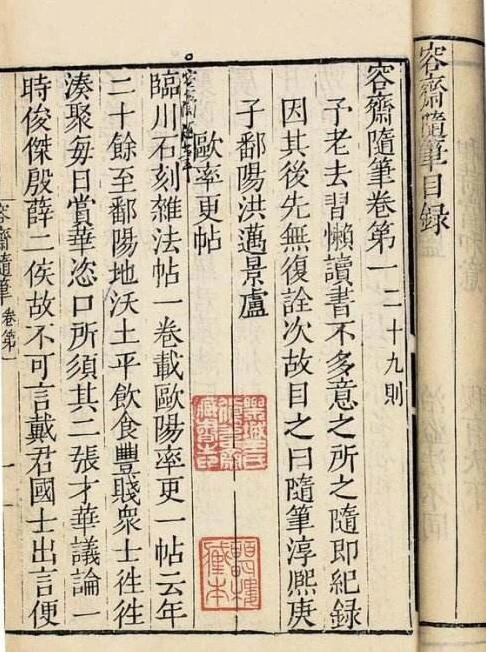 容齋隨筆目録
容齋隨筆卷第一 二十九則
予老去習懶讀書不多意之所之隨即紀録
因其後先無復詮次故目之曰隨筆淳熈庚
子鄱陽洪邁景盧
歐率更帖
臨川石刻雜法帖一卷載歐陽率更一帖云年
二十餘至鄱陽地沃土平飲食豐賤衆士徃徃
湊聚每日賞華恣口所須其二張才華議論一
時俊傑殷薛二侯故不可言戴君國士出言便
容齋隨筆 卷第一
一